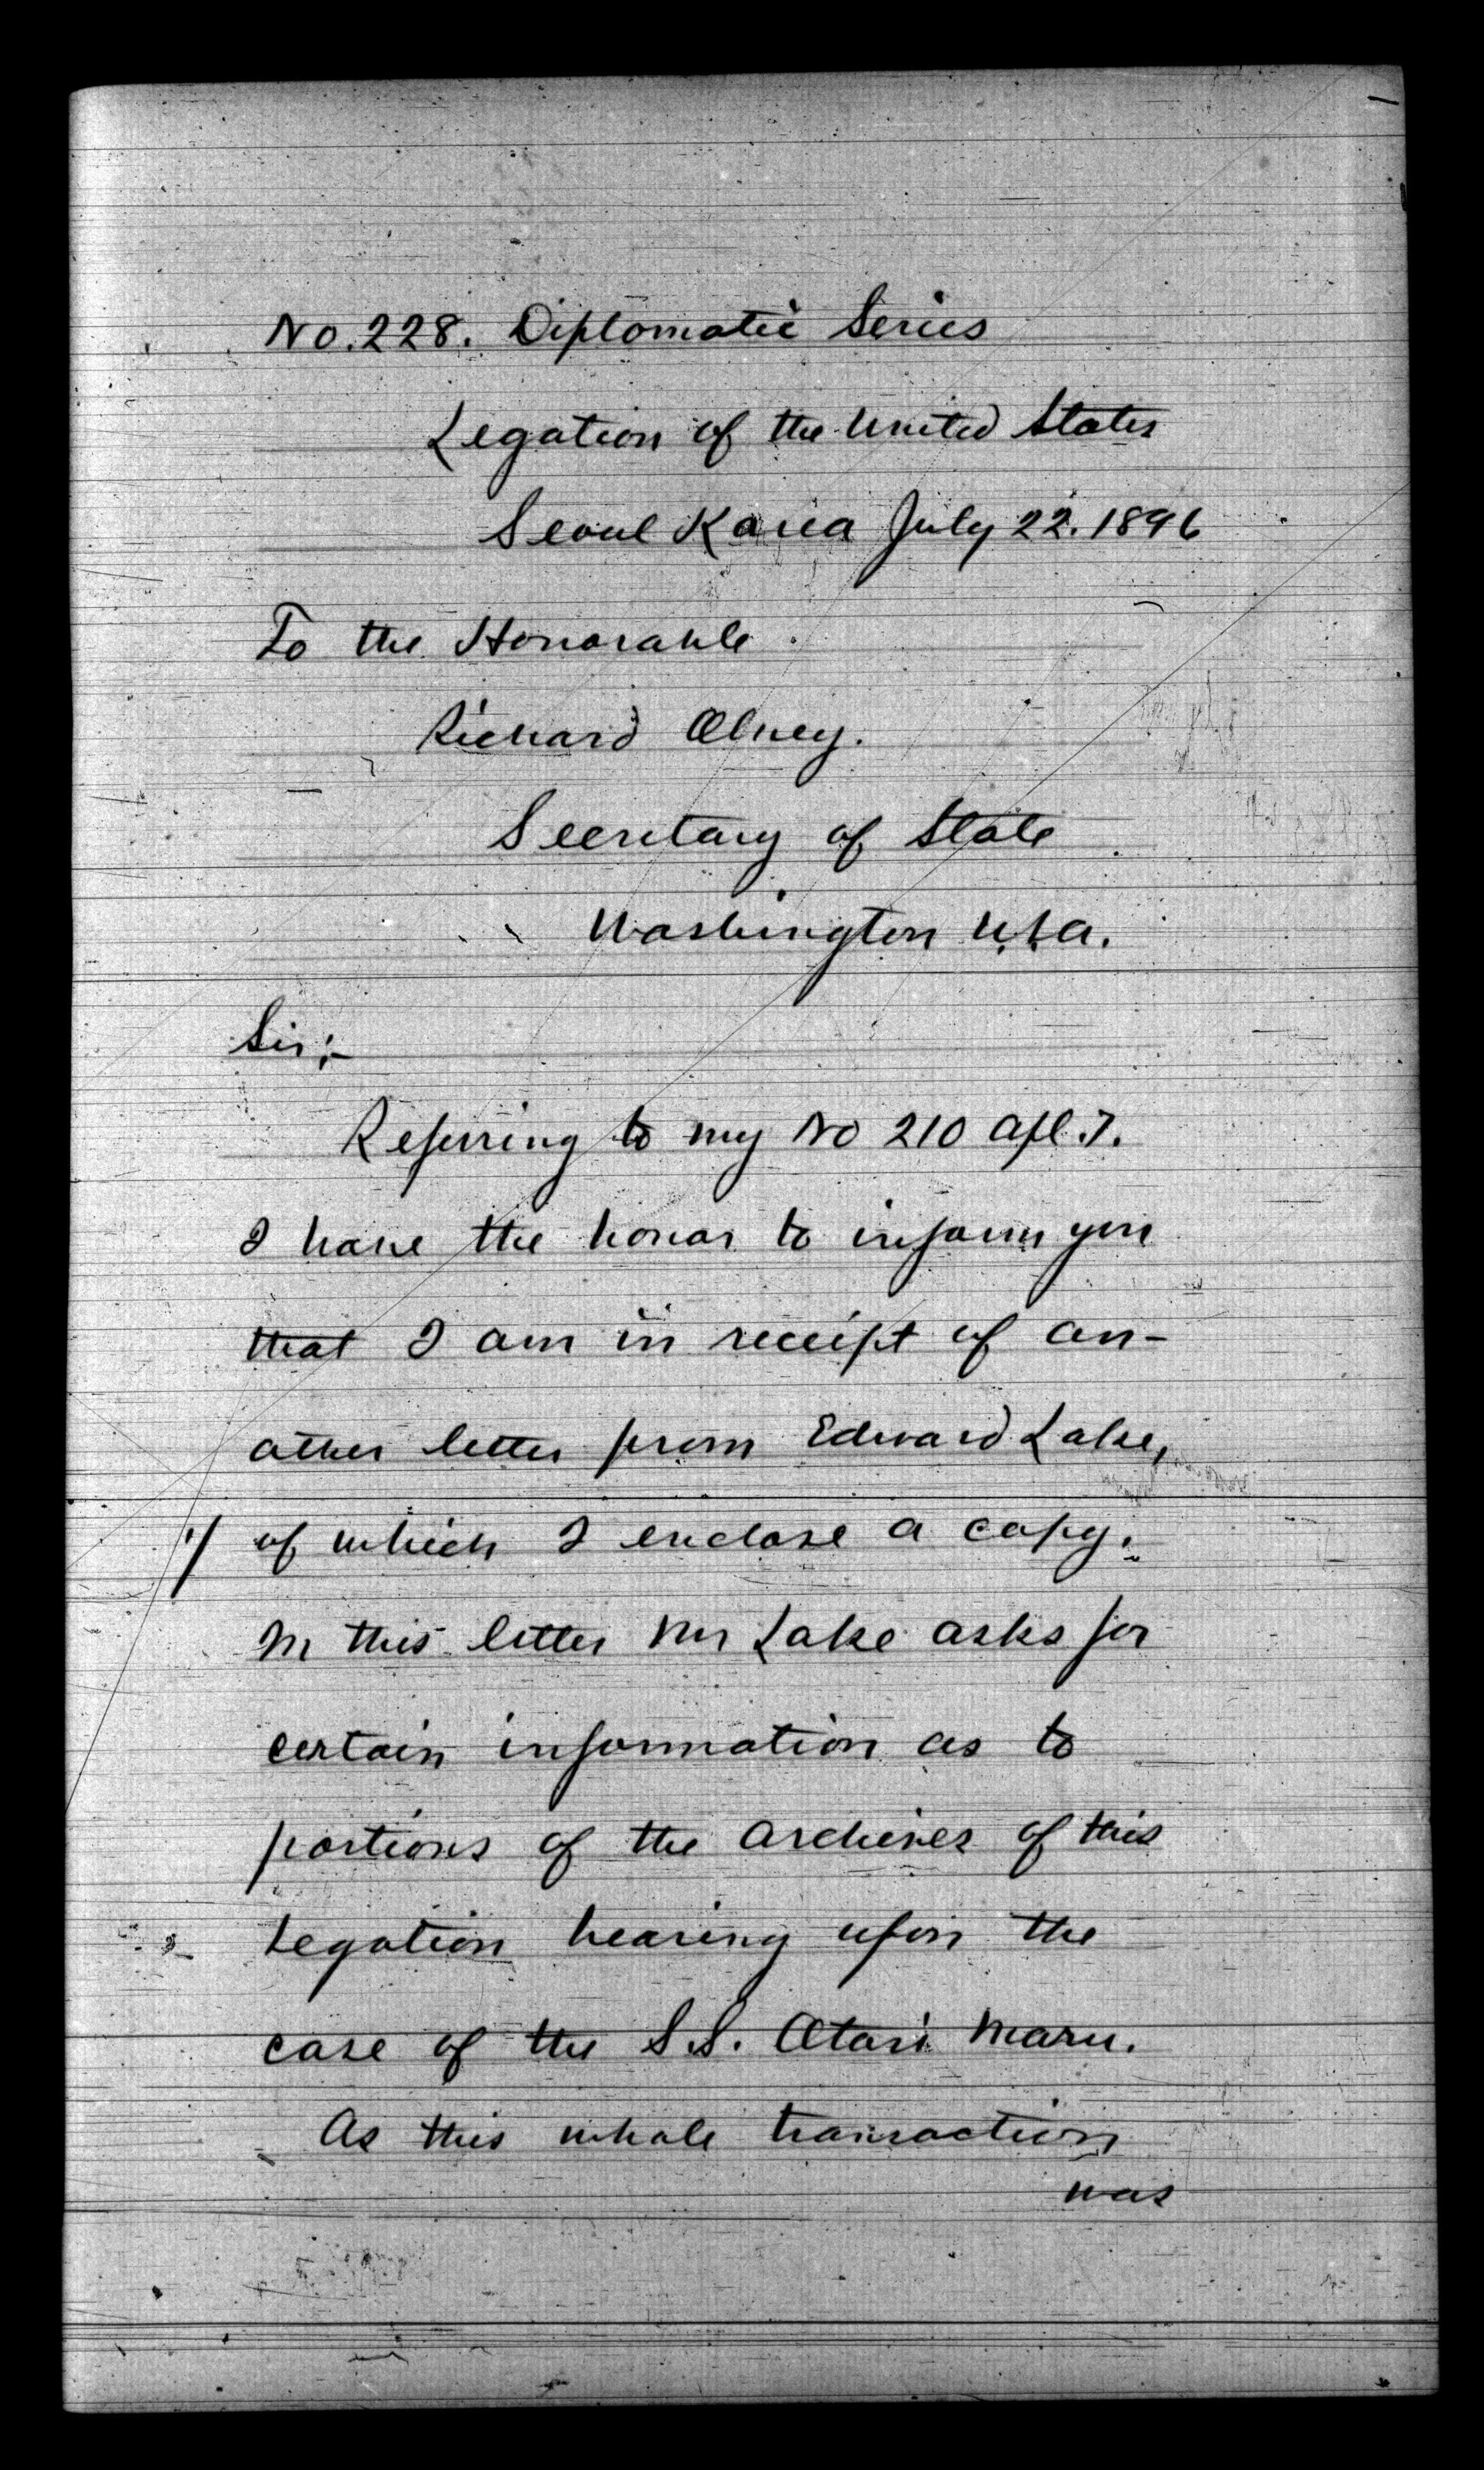 No. 228. Diplomatic Series
Legation of the United States
Seoul Korea July 22. 1896
To the Honorable
Richard Olney.
Secretary of State
Washington U.S.A.
Sir;-
Referring to my No 210 Apl. 7.
I have the honor to inform you
that I am in receipt of an-
other letter from Edward Lake,
1/ of which I enclose a copy.
In this letter Mr Lake asks for
certain information as to
portions of the Archives of this
Legation bearing upon the
case of the S.S. Otari Maru.
As this whole transaction
was